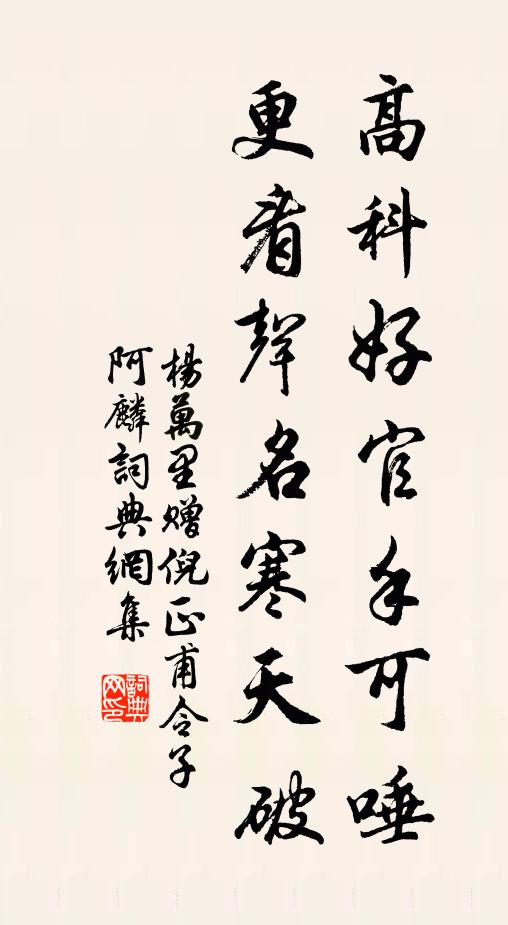 高科好官手可唾
更看聲名寒天破
楊萬里贈倪正甫令子
阿麟詞典網集
詞典网印